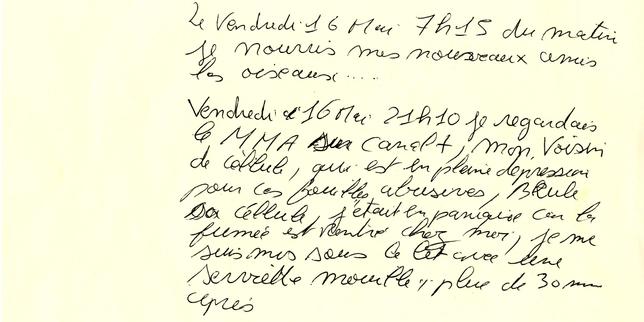 Le Vendredi 16 Mai 7h15 du matin
je nourris mes nouveaux amis
les oiseaux ....
Vendredi 16 Mai 21h10 je regardais
le MMA sur canal+, mon voisin
de céllule, qui est en pleine dépression
pour ces fouilles abusives, BRule
sa céllule, j'était en panique car la
fumée est rentré chez moi, je me
suis mis sous le lit avec une
serviette mouillé, plus de 30 mn
après